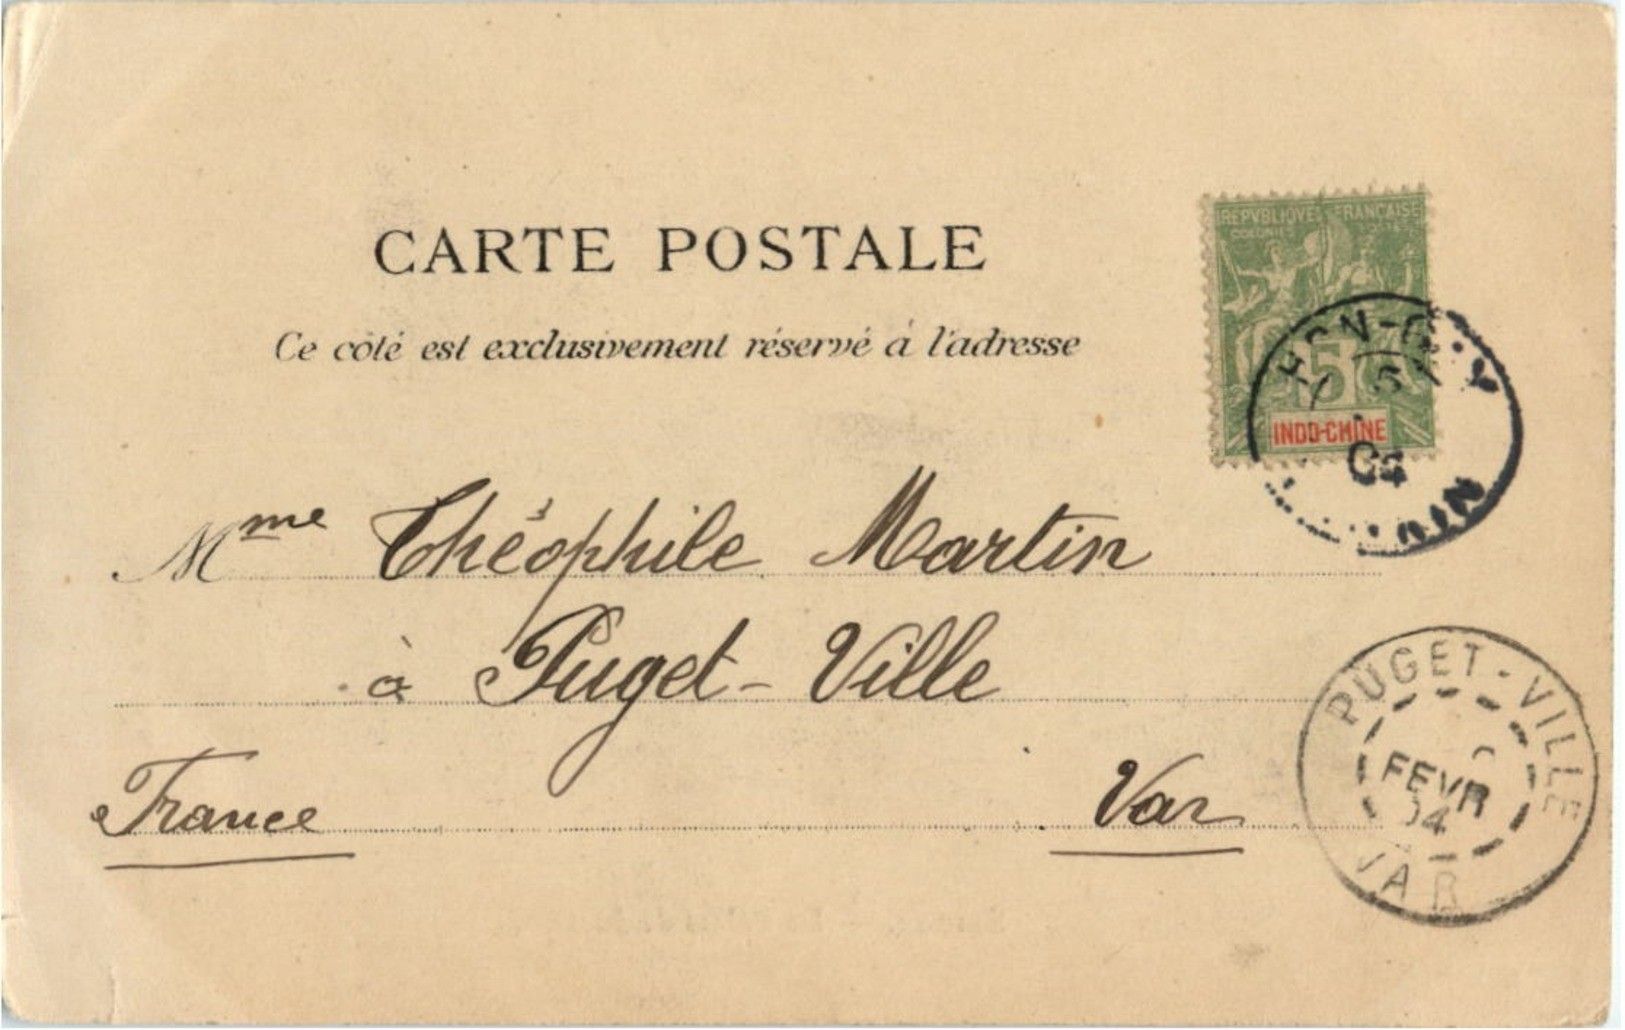 REPVBLIQVE FRANÇAISE
COLONIES
5
INDO-CHINE
04
CARTE POSTALE
Ce côté est exclusivement réservé à l'adresse
Mme Théophile Martin
à Puget-Ville
France Var
PUGET-VILLE
FEVR
04
VAR